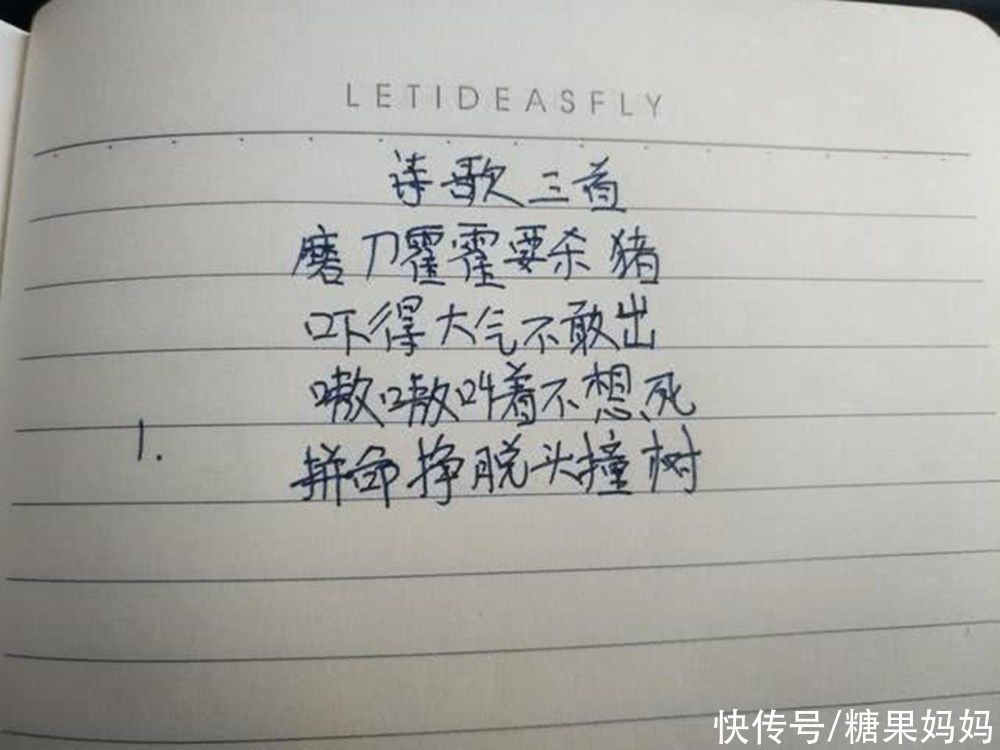 LETIDEASFLY
诗歌三首
磨刀霍霍要杀猪
吓得大气不敢出
嗷嗷叫着不想死
1.
拼命挣脱头撞树
快传号/糖果妈妈